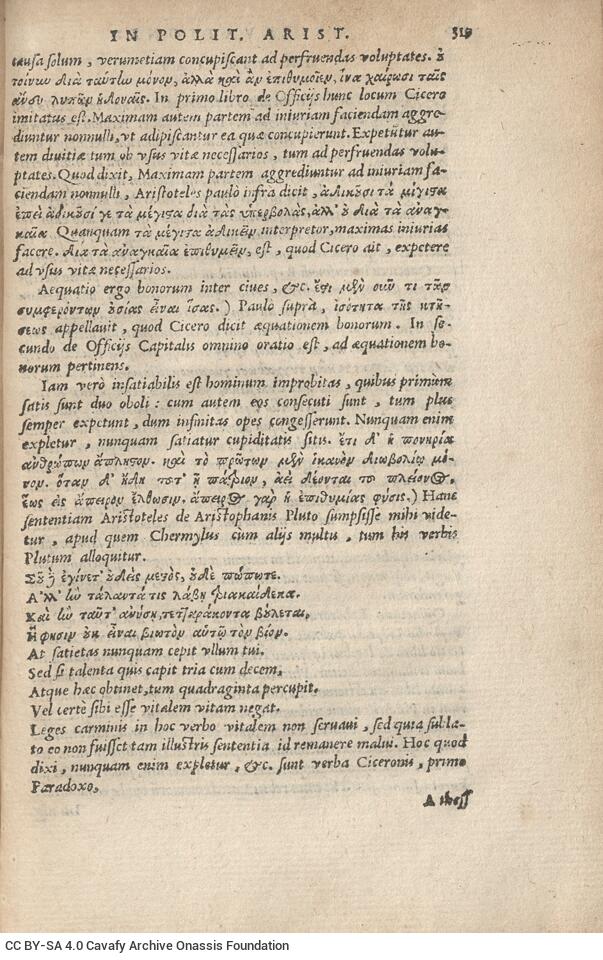 IN POLIT. ARIST. 319
causa solum, verumetiam concupiscant ad perfruendas voluptates. ȣ
τοίνυν διὰ ταύτην μόνον, ἀλλὰ καὶ ἂν ἐπιθυμοῖεν, ἵνα χαίρωσι ταῖς
ἄνευ λυπῶν ἡδοναῖς. In primo libro de Officijs hunc locum Cicero
imitatus est. Maximam autem partem ad iniuriam faciendam aggre-
diuntur nonnulli, vt adipiscantur ea quæ concupierunt. Expetūtur au-
tem diuitiæ tum ob vsus vitæ necessarios, tum ad perfruendas volu-
ptates. Quod dixit, Maximam partem aggrediuntur ad iniuriam fa-
ciendam nonnulli, Aristoteles paulo infra dicit, ἀδικȣσι τὰ μέγιστα
ἐπεὶ ἀδικȣσί γε τὰ μέγιστα διὰ τὰς ὑπερβολὰς, ἀλλ' ȣ διὰ τὰ ἀναγ-
καῖα Quanquam τὰ μέγιστα ἀδικεῖν interpretor, maximas iniurias
facere. διὰ τὰ ἀναγκαῖα ἐπιθυμεῖν, est, quod Cicero ait, expetere
ad vsus vitæ necessarios.
Aequatio ergo bonorum inter ciues, &c. ἔστι μὲν οὖν τι τῶν
συμφερόντων ȣσίας εἶναι ἴσας.) Paulò suprà, ἰσότητα τῆς κτή-
σεως appellauit, quod Cicero dicit æquationem bonorum. In se-
cundo de Officijs Capitalis omnino oratio est, ad æquationem bo-
norum pertinens.
Iam verò insatiabilis est hominum improbitas, quibus primùm
satis sunt duo oboli: cum autem eos consecuti sunt, tum plus
semper expetunt, dum infinitas opes congesserunt. Nunquam enim
expletur, nunquam satiatur cupiditatis sitis. ἔτι δ' ἡ πονηρία
ἀνθρώπων ἄπληστον. καὶ τὸ πρῶτον μὲν ἱκανὸν διωβολία μό-
νον. ὅταν δ' ἤδη τοτ' ᾖ πάτριον, ἀεὶ δέονται τȣ πλείονος,
ἕως εἰς ἄπειρον ἔλθωσιν. ἄπειρος γὰρ ἡ ἐπιθυμίας φύσις.) Hanc
sententiam Aristoteles de Aristophanis Pluto sumpsisse mihi vide-
tur, apud quem Chermylus cum alijs multis, tum his verbis
Plutum alloquitur.
Σȣ δ' ἐγίνετ' ȣδεὶς μεστὸς, ȣδὲ πώποτε.
Ἀλλ' ἢν τάλαντά τις λάβῃ τριακαίδεκα.
Καὶ ἢν ταῦτ' ἀνύσῃ, τετταράκοντα βȣλεται,
Ἤ φησιν ȣκ εἶναι βιωτὸν αὐτῷ τὸν βίον.
At satietas nunquam cepit vllum tui.
Sed si talenta quis capit tria cum decem,
Atque hæc obtinet, tum quadraginta percupit.
Vel certe sibi esse vitalem vitam negat.
Leges carminis in hoc verbo vitalem non seruaui, sed quia subla-
to eo non fuisset tam illustris sententia id remanere malui. Hoc quod
dixi, nunquam enim expletur, &c. sunt verba Ciceronis, primo
Paradoxo,